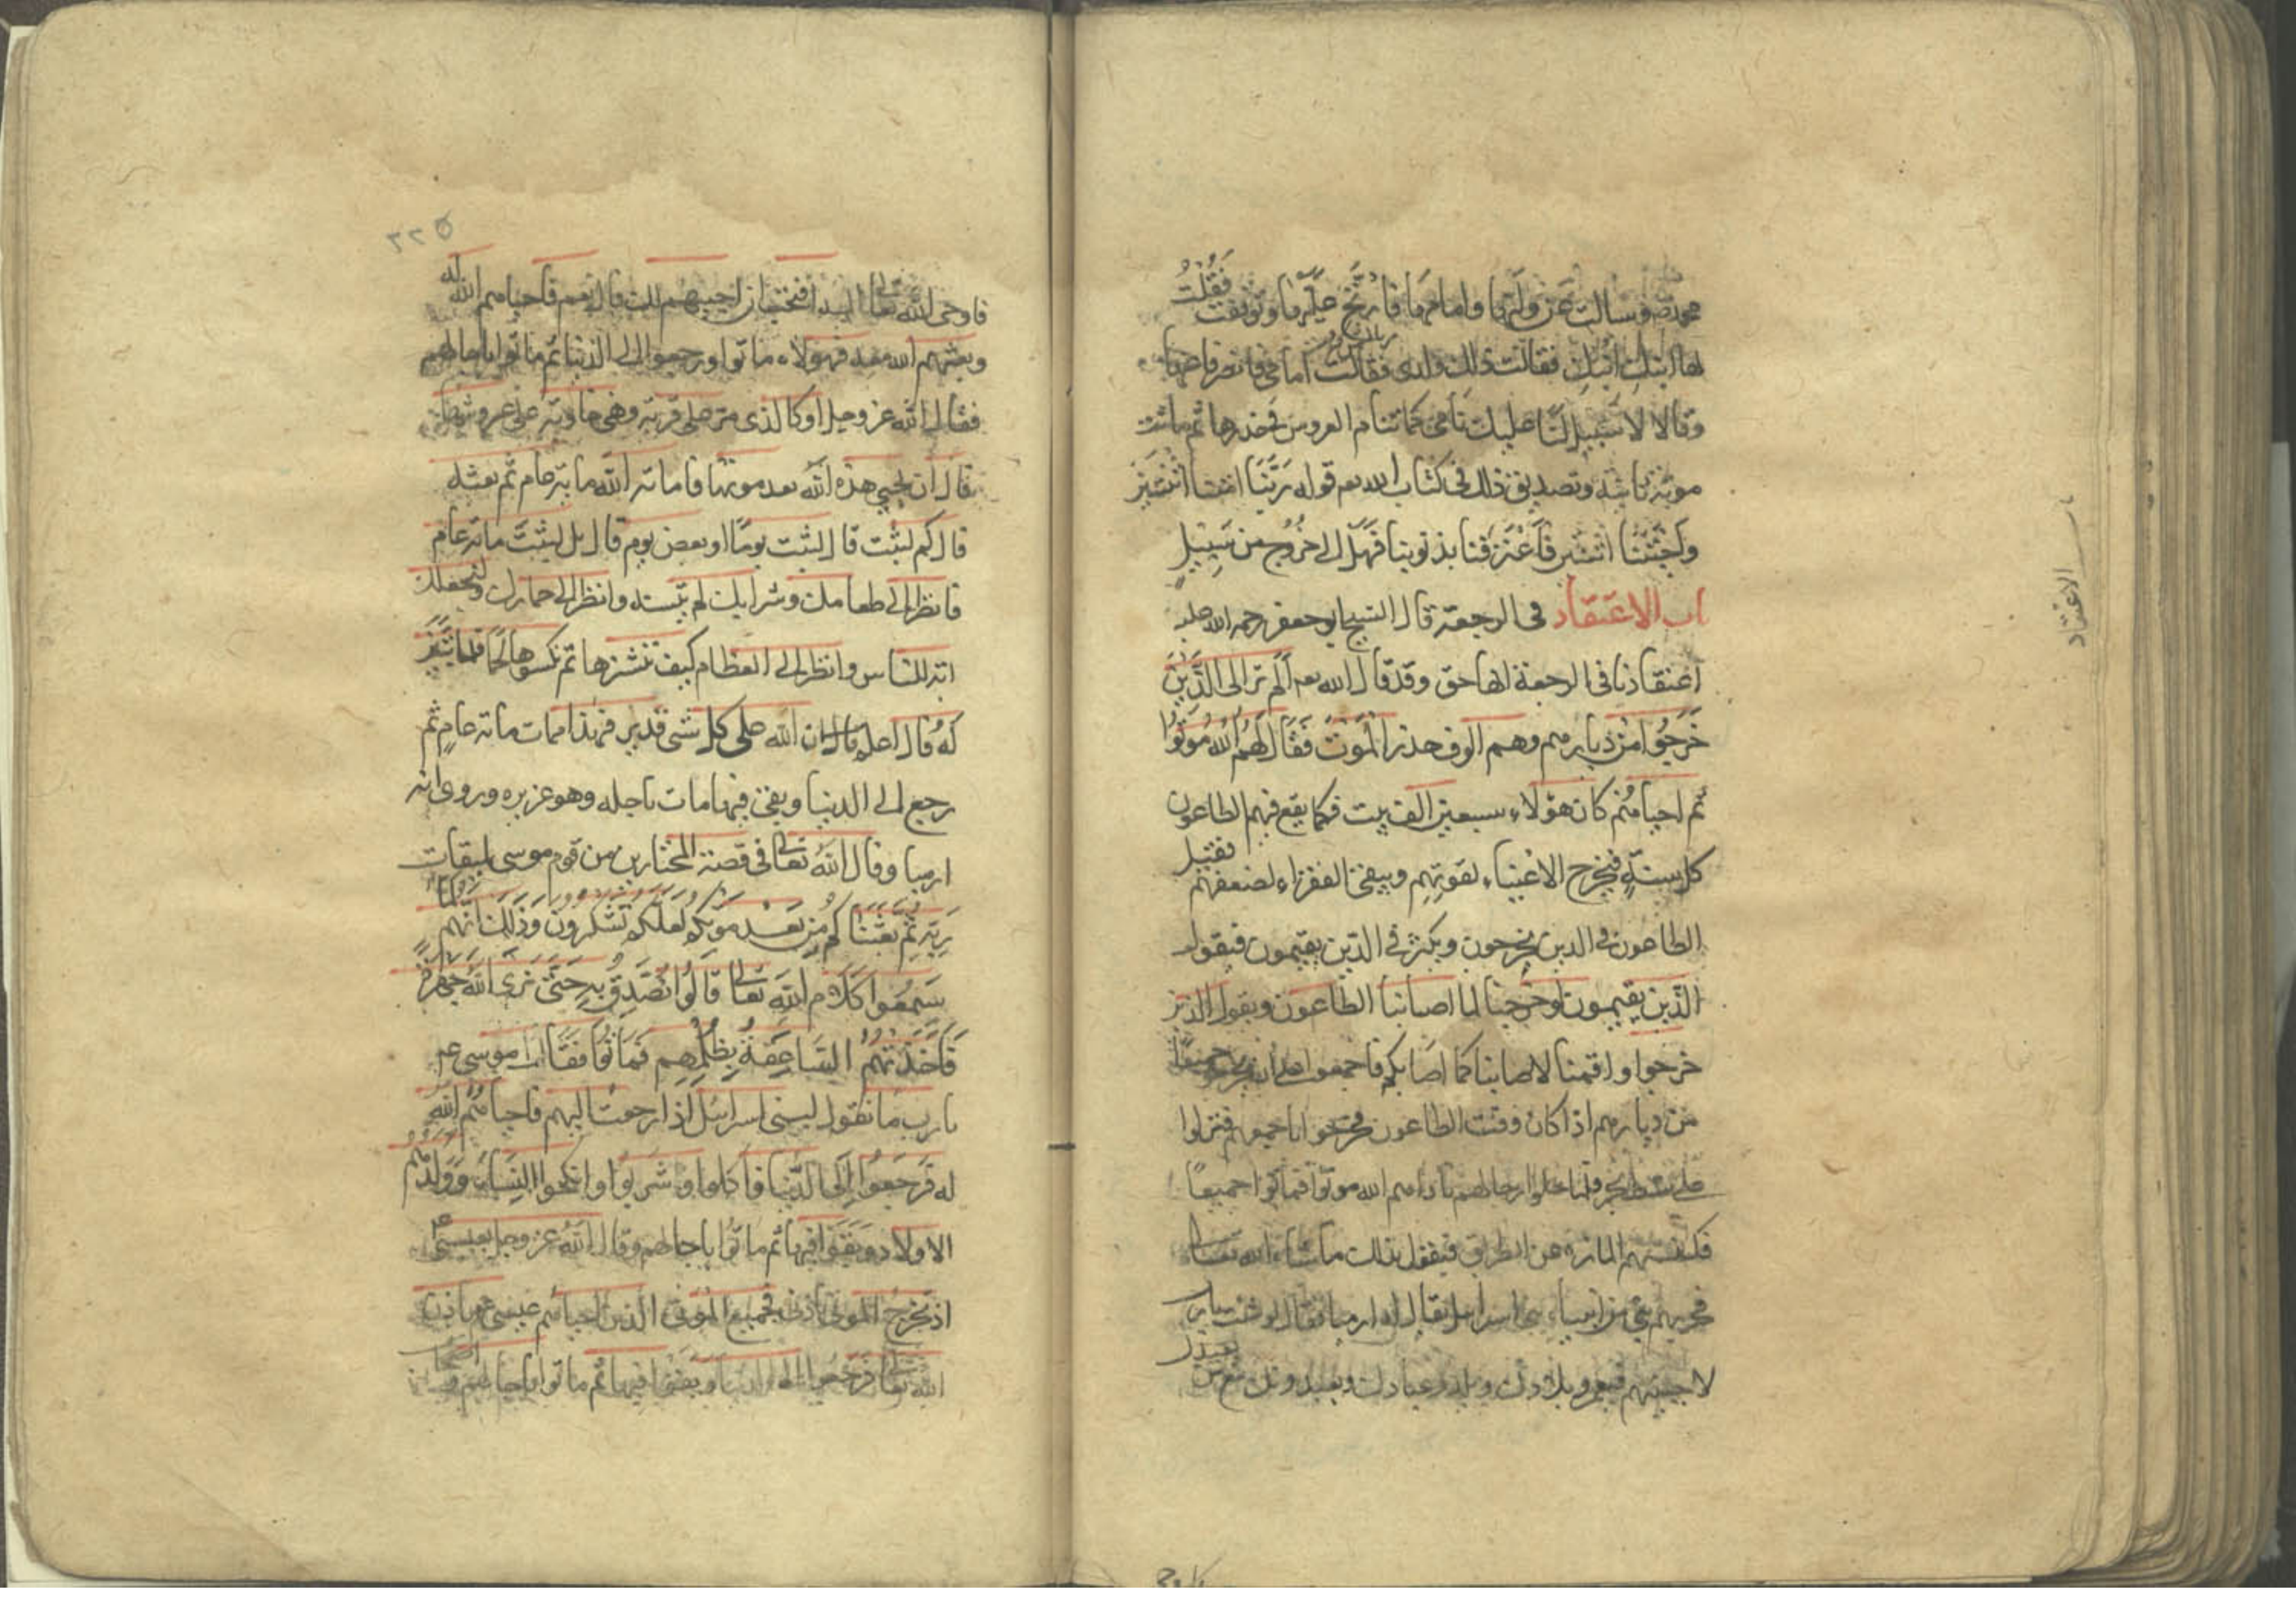 محمد ص وسالت عن ولیها وامامها فارتج علیها وتوقفت فقلت
لها ابنك ابنك فقالت ذلك ولدی فقالت امامی فانصرفا عنها
وقالا لا سبیل لنا علیك نامی كما تنام العروس فی خدرها ثم ماتت
موتة ثانیة وتصدیق ذلك فی كتاب الله تعه قوله رَبَّنَا امتنا اثنتین
وَاحْیَیتَنَا اثنتین فَاعْتَرَفنا بذنوبنا فَهَل الی خُرُوج من سَبِیلٍ
باب الاعتقاد فی الرجعة قال الشیخ ابو جعفر رحمه الله علیه
اعتقادنا فی الرجعة انها حق وقد قال الله تعه اَلَم تر الی الَّذِینَ
خَرَجُوا من دیارهم وهم الوف حذر المَوت فَقَال لَهُم اللهُ مُوتُوا
ثم احیاهُم كان هؤلاء سبعین الف بیت فكان یقع فیهم الطاعون
كل سنةٍ فیخرج الاغنیاء لقوتهم ویبقی الفقراء لضعفهم فیقل
الطاعون فی الذین یخرجون ویكثر فی الذین یقیمون فیقول
الذین یقیمون لو خرجنا لما اصابنا الطاعون ویقول الذین
خرجوا لو اقمنا لاصابنا كما اصابكم فاجمعوا علی ان یخرجوا جمیعًا
من دیارهم اذا كان وقت الطاعون فخرجوا باجمعهم فنزلوا
علی شط بحر فلما حلوا رحالهم ناداهم الله موتوا فماتوا جمیعًا
فكنستهم المارة عن الطریق فبقوا بذلك ماشاء الله تعالی
فمر بهم نبی من انبیاء بنی اسرائیل یقال له ارمیا فقال لو شئت یارب
لاحییتهم فیعمروا بلادك ویلدوا عبادك ویعبدونك مع من یعبدك
باب الاعتقاد
۲۲۵
فاوحی الله تعالی الیه افتحب ان احییهم لك قال نعم فاحیاهم الله له
وبعثهم الله معه فهؤلاء ماتوا ورجعوا الی الدنیا ثم ماتوا باجالهم
فقال الله عز وجل او كالذی مر علی قریة وهی خاویة علی عروشها
قال أن یحیی هذه الله بعد موتها فاماته الله مایة عام ثم بعثه
قال كم لبثت قال لبثت یومًا او بعض یوم قال بل لبثت مائة عام
فانظر الی طعامك وشرابك لم یتسنه وانظر الی حمارك ولنجعلك
ایة للناس وانظر الی العظام كیف ننشزها ثم نكسوها لحمًا فلما تَبَیَّنَ
لَهُ قال اعلم ان الله علی كل شی قدیر فهذا مات مائة عامٍ ثم
رجع الی الدنیا وبقی فیها مات باجله وهو عزیره وروی انه
ارمیا وقال الله تعالی فی قصة المختارین من قوم موسی لمیقات
رَبِّه ثُمَّ بَعَثْنَاكُم مِن بَعْدِ مَوْتِكُم لَعَلَّكُم تَشْكُرُون وَذَلِكَ انَّهُم لَمَّا
سَمِعُوا كَلَام اللهِ تعالی قَالُوا لا نُصَدِّقُ بِهِ حَتَّی نَرَی الله جَهْرَةً
فَأَخَذَتْهُمُ الصَّاعِقَةُ بِظُلْمِهِم فَمَاتُوا فَقَال موسی عم
یارب ما نقول لبنی اسرائیل اذا رجعت الیهم فاحیاهُم الله
له فَرَجَعُوا إِلَی الدُّنیا فأكلوا وشربوا وانكحوا النساءَ وَوُلد لهم
الاولاد وبقوا فیها ثم ماتوا باجالهم وقال اللهُ عز وجل لعیسی عم
اذ تخرج الموتی باذنی فجمیع الموتی الذین احیاهم عیسی عم باذن
الله تعالی رجعوا الی الدنیا وبقوا فیها ثم ماتوا باجالهم واصحاب